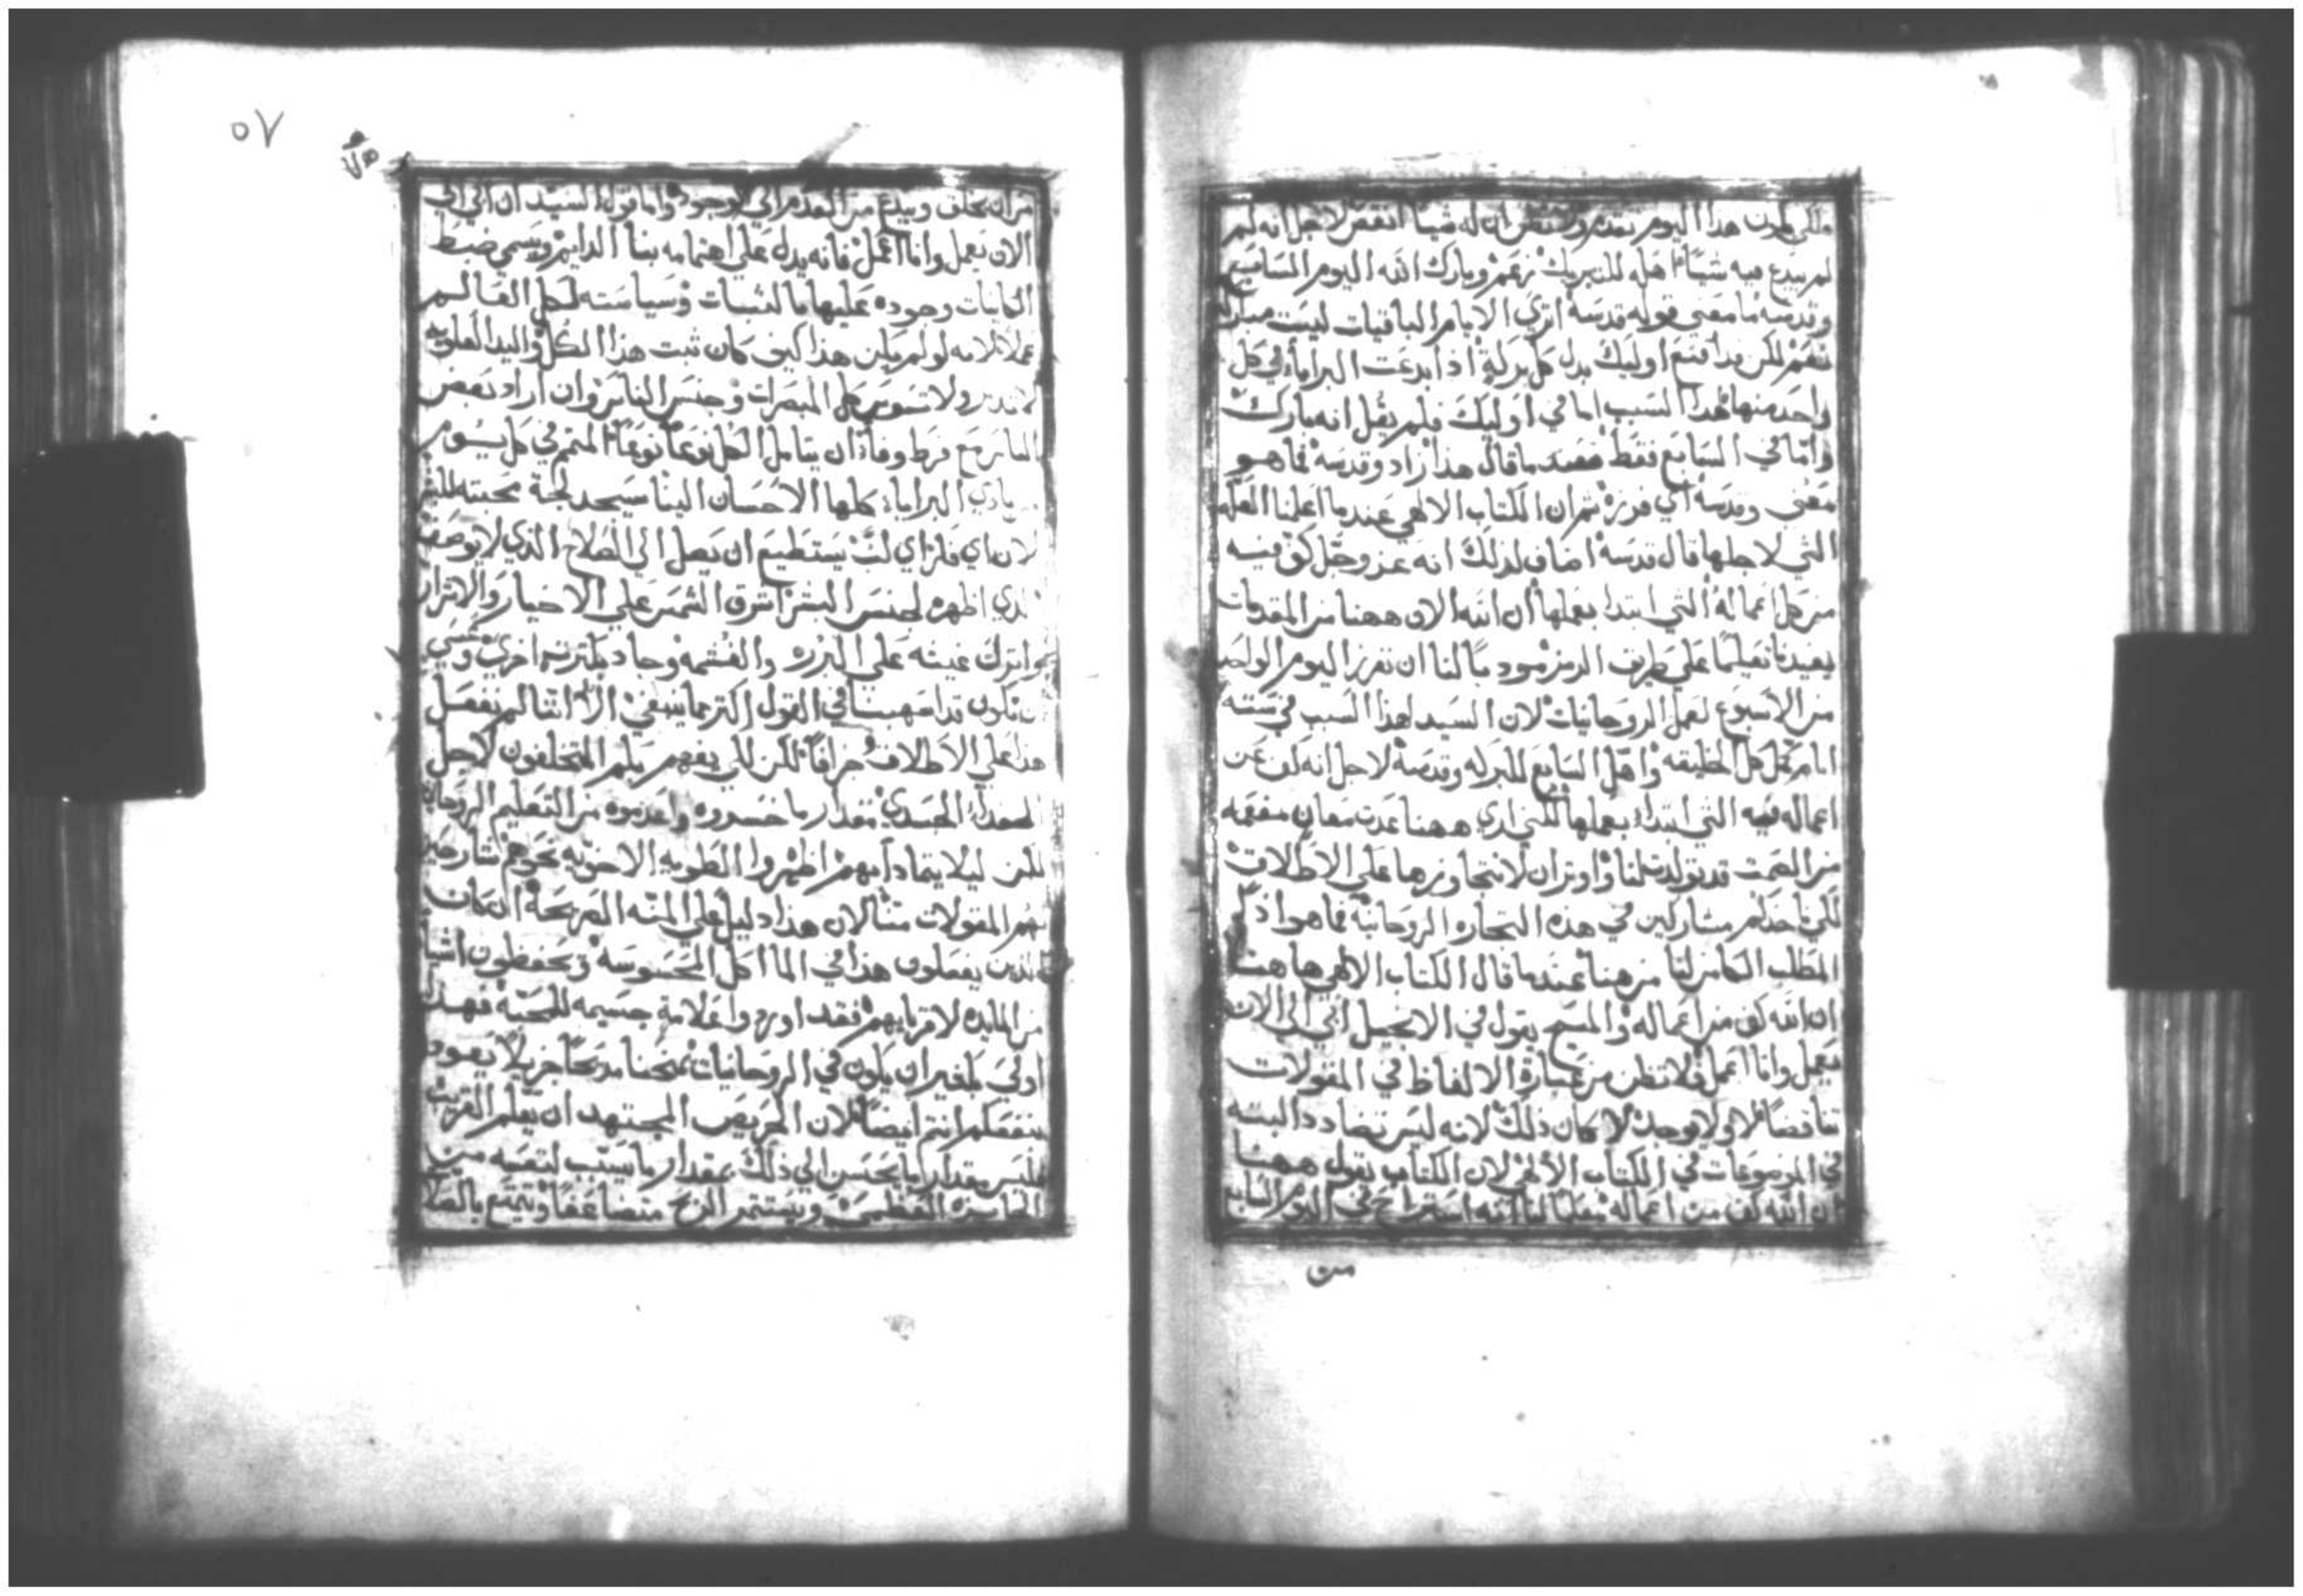 لكي لا يكون هذا اليوم تقدم وتظن ان له شيا انقص لاجل انه لم
لم يبدع فيه شيًا هله للتبريك نعم وبارك الله اليوم السابع
وقدسه ما معني قوله قدسه اتري الايام الباقيات ليست مباركه
نعم لكن قد اقنع اوليك بدل كل بركة اذ ابدعت البرايا في كل
واحد منها لهذا السبب اما في اوليك فلم يقل انه بارك
واما في السابع فقط فعند ما قال هذا زاد وقدسه فما هو
معني وقدسه اي فرزه ثم ان الكتاب الالهي عند ما اعلمنا العله
التي لاجلها قال قدسه اضاف لذلك انه عز وجل كف فيه
من كل اعماله التي ابتدا بعملها ان الله الان ههنا من المقدمات
يفيدنا تعليمًا علي طريف الرمز مودبًا لنا ان نفرز اليوم الواحد
من الاسبوع لعمل الروحانيات لان السيد لهذا السبب في ستة
ايام كمل كل الخليقه واهل السابع للبركه وقدسه لاجل انه كف عن
اعماله فيه التي ابتدا بعملها لكنني اري ههنا عدت معان مفعمه
من الصمت قد تولدت لنا واوثر ان لا نتجاوزها علي الاطلاق
لكي ناخذكم مشاركين في هذه التجاره الروحانيه فما هو اذ
المطلب الكامن لنا من هنا عند ما قال الكتاب الالهي ها هنا
ان الله كف من اعماله والمسيح يقول في الانجيل ابي الي الان
يعمل وانا اعمل فلا تظن من عبارة الالفاظ في المقولات
تناقضًا لا ولا يوجد لا كان ذلك لانه ليس تضادد البته
في الموضوعات في الكتاب الالهي لان الكتاب يقول ههنا
ان الله كف من اعماله معلمًا لنا انه استراح في اليوم السابع
من
٥٧
من ان يخلق ويبدع من العدم الي الوجود واما قول السيد ان ابي الي
الان يعمل وانا اعمل فانه يدل علي اهتمامه بنا الدايم ويسمي ضبط
الكاينات وجوده عليها بالثبات وسياسته لكل العالم
عملا لانه لو لم يكن هذا كيف كان ثبت هذا الكل واليد العلويه
لا تدبر ولا تسوس كل المبصرات وجنس الناس وان اراد بعض
الناس مع فرط وفاة ان يتامل الكل نوعًا نوعًا المتمم في كل يوم
بادي البرايا كلها الاحسان الينا سيجد لجة محبته للبشر
لان اي فكر اي لب يستطيع ان يصل الي الصلاح الذي لا يوصف
الذي اظهره لجنس البشر اشرق الشمس علي الاخيار والاشرار
وانزل غيثه علي البرره والغشمه وجاد بكثرة اخري وعسي
ان نكون قد اسهبنا في القول اكثر مما ينبغي الا اننا لم نفعل
هذا علي الاطلاق جزافًا لكن لكي يفهم بكم المتخلفون لاجل
الغداء الجسدي مقدار ما خسروه واعدموه من التعليم الروحاني
لكن ليلا يتمادا بهم اظهروا الطويه الاخويه نحوهم شارحين
لهم المقولات منا لان هذا دليل علي المحبه الصريحة ان كان
الذين يفعلون هذا في الماكل المحسوسه ويحفظون اشيا
من المايده لاقربايهم فقد اوردوا علامة جسيمه للمحبه فهذا
اولي بلغير ان يكون في الروحانيات يمنحنا مدحًا جزيلا يعود
بنفعكم انتم ايضًا لان الحريص المجتهد ان يعلم القريب
ليس مقدار ما يحسن الي ذلك بمقدار ما يسبب لنفسه من
الجايزه العظمي ويستثمر الربح متضاعفًا ويتمتع بالصلاح